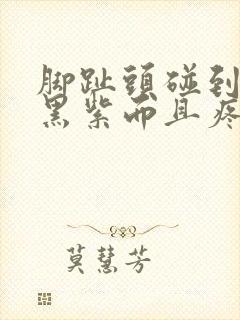 脚趾頭碰到
黑紫而且疼
莫慧芳